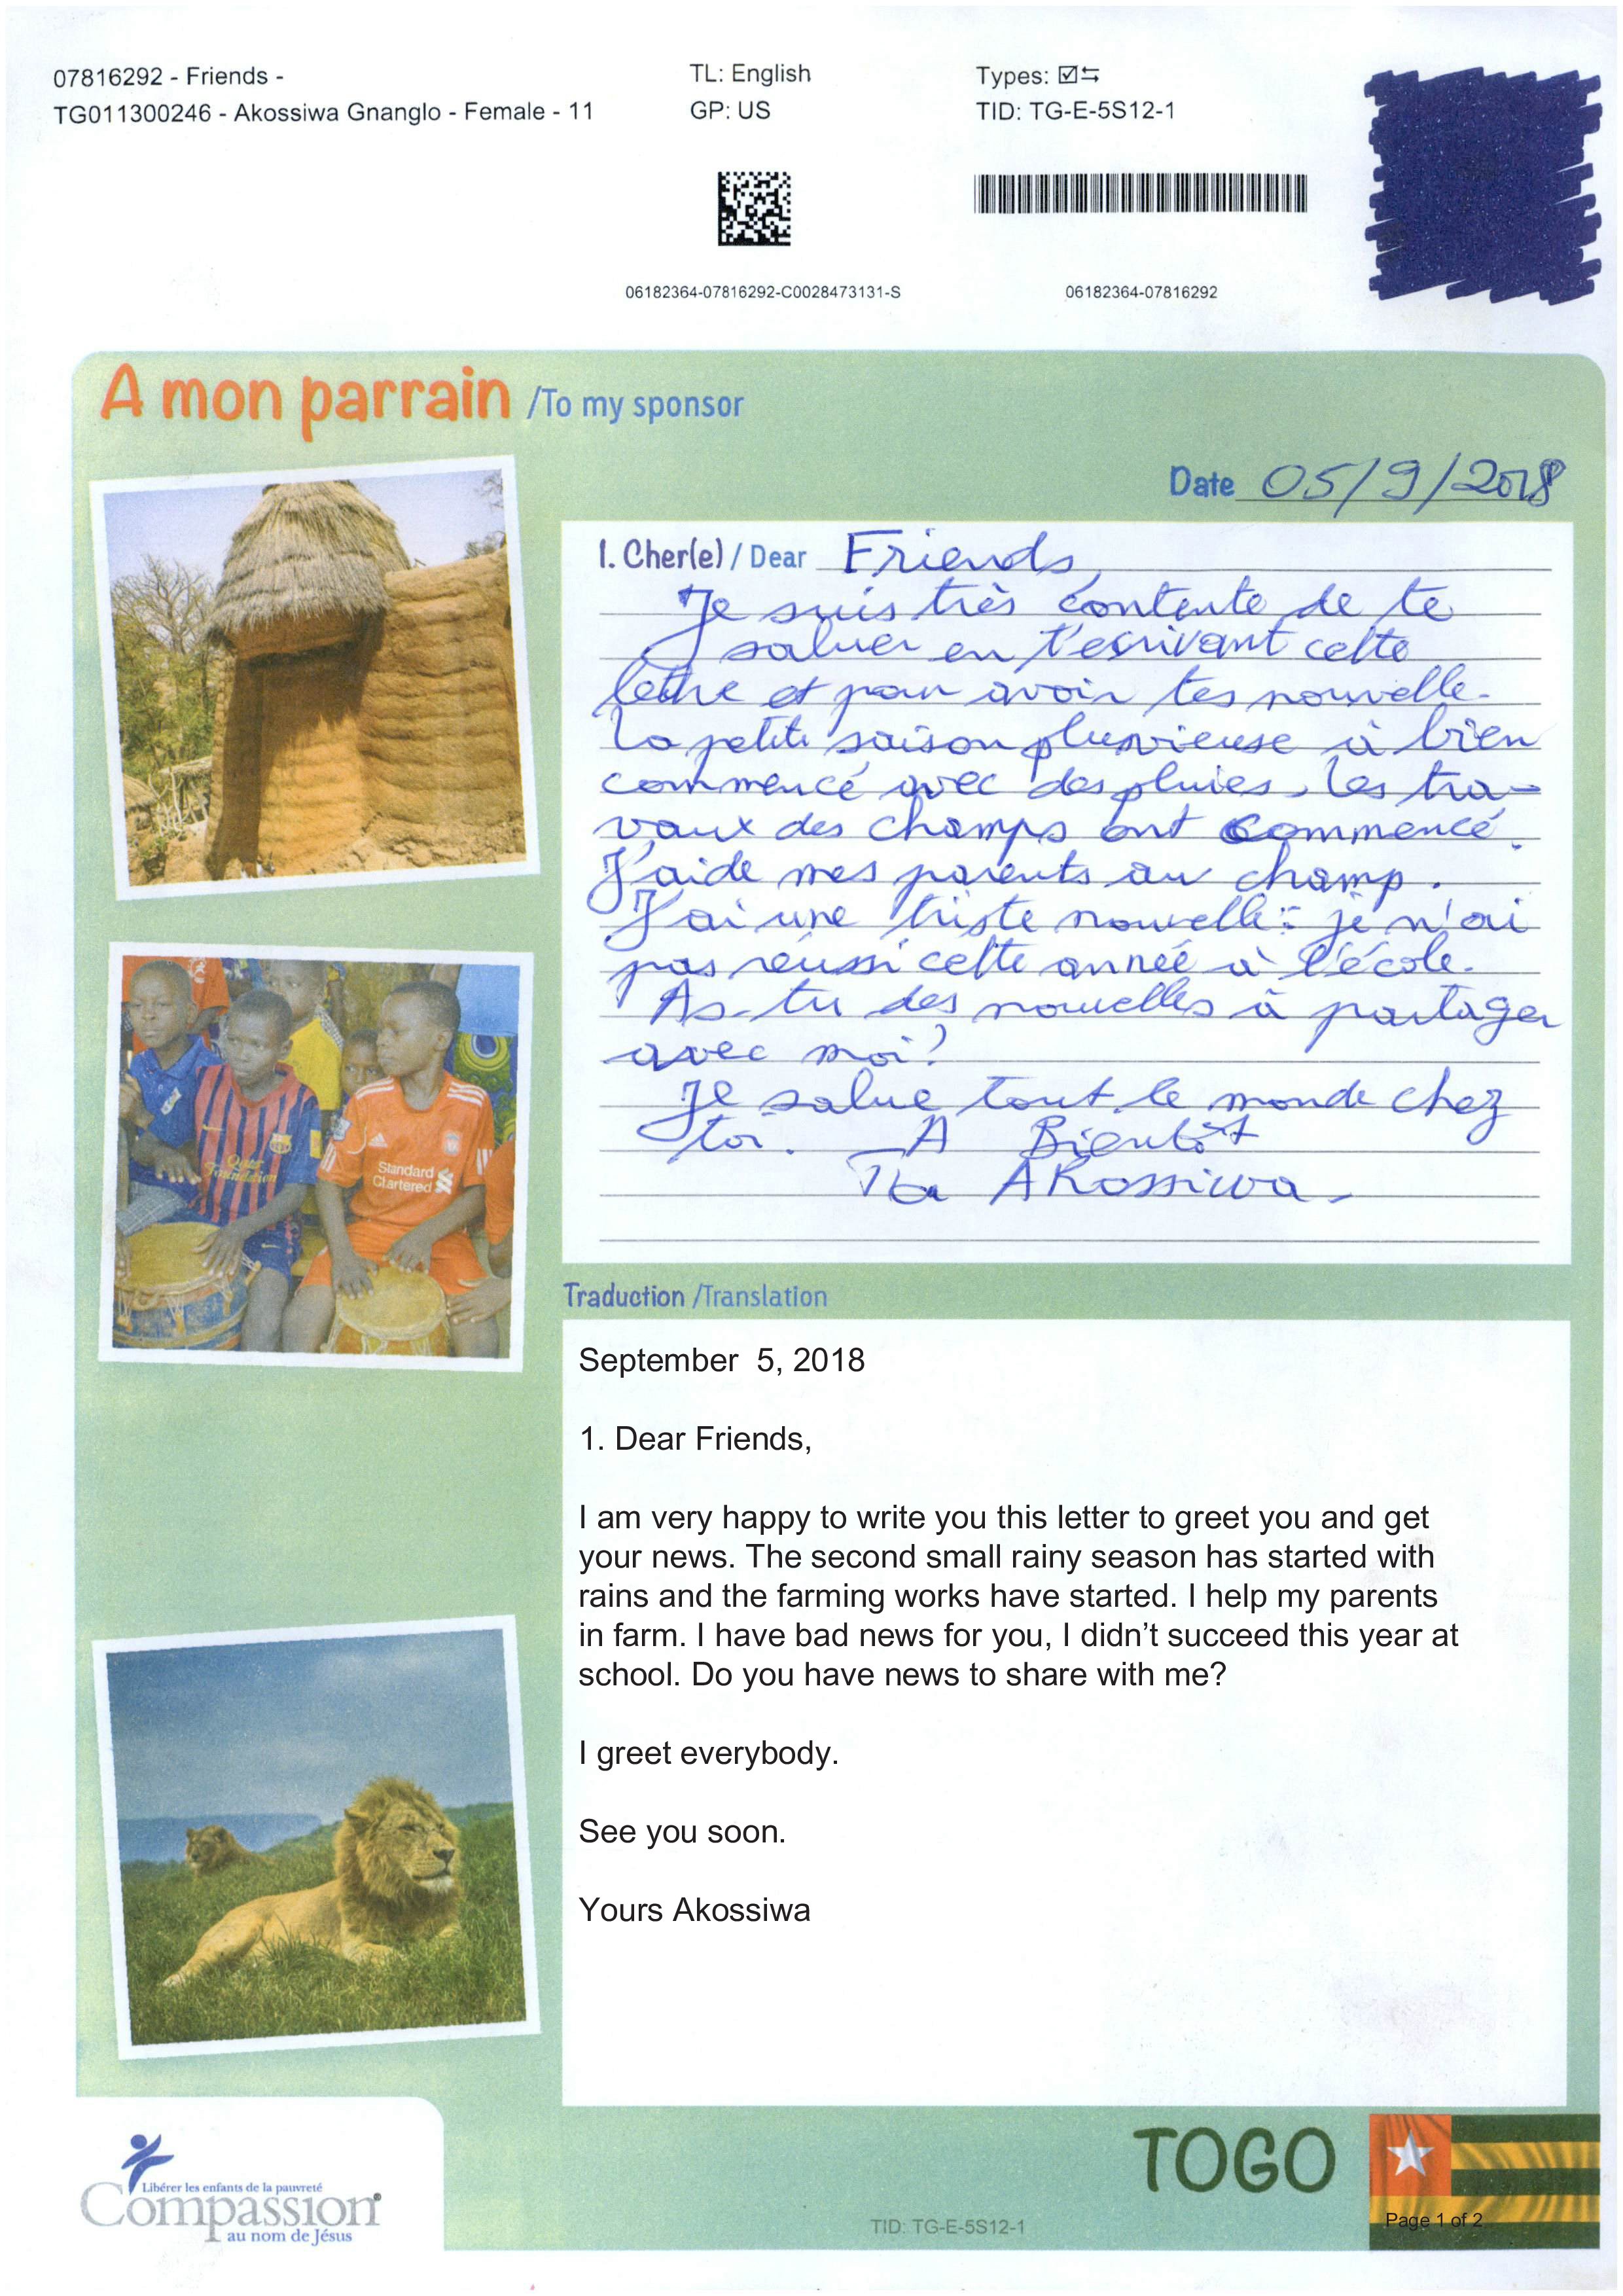 07816292 - Friends -
TG011300246 - Akossiwa Gnanglo - Female - 11
TL: English
GP: US
Types: ☑⇆
TID: TG-E-5S12-1
06182364-07816292-C0028473131-S
06182364-07816292
A mon parrain /To my sponsor
Date 05/9/2018
1. Cher(e) / Dear Friends,
Je suis très contente de te
saluer en t'ecrivant cette
lettre et pour avoir tes nouvelle.
La petite saison pluvieuse à bien
commencé avec des pluies. Les tra-
vaux des champs ont commencé.
J'aide mes parents au champ.
J'ai une triste nouvelle : je n'ai
pas réussi cette année à l'école.
As-tu des nouvelles à partager
avec moi?
Je salue tout le monde chez
toi. A Bientôt
Ta Akossiwa.
Traduction /Translation
September 5, 2018
1. Dear Friends,
I am very happy to write you this letter to greet you and get
your news. The second small rainy season has started with
rains and the farming works have started. I help my parents
in farm. I have bad news for you, I didn't succeed this year at
school. Do you have news to share with me?
I greet everybody.
See you soon.
Yours Akossiwa
Qatar
Foundation
Standard
Chartered
Libérer les enfants de la pauvreté
Compassion®
au nom de Jésus
TID: TG-E-5S12-1
TOGO
Page 1 of 2